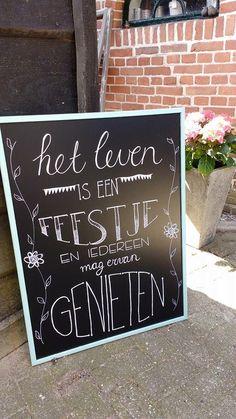 het leven
IS EEN
FEESTJE
EN IEDEREEN
mag ervan
GENIETEN